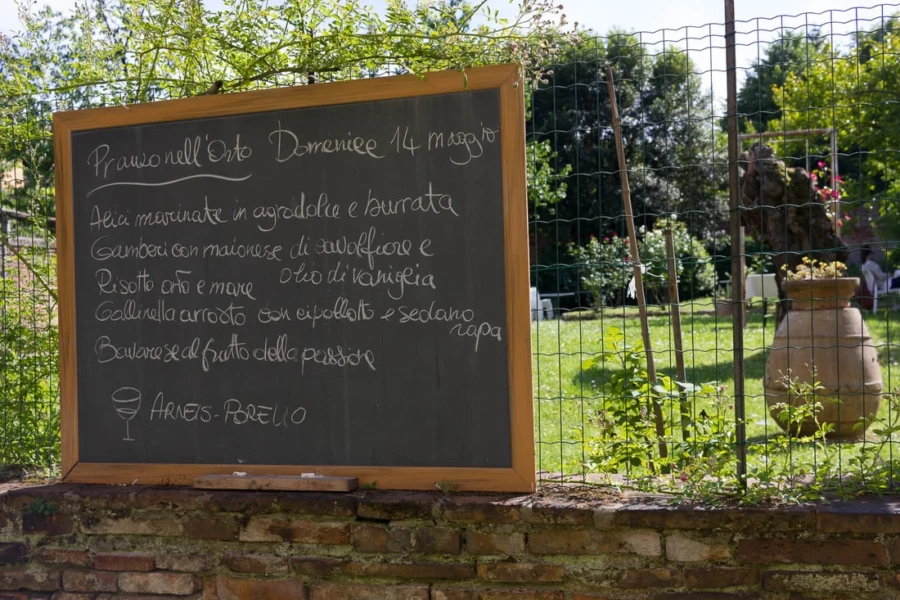 Pranzo nell'Orto Domenica 14 maggio
Alici marinate in agrodolce e burrata
Gamberi con maionese di cavolfiore e
olio di vaniglia
Risotto orto e mare
Gallinella arrosto con cipollotto e sedano
rapa
Bavarese al frutto della passione
ARNEIS-PORELLO